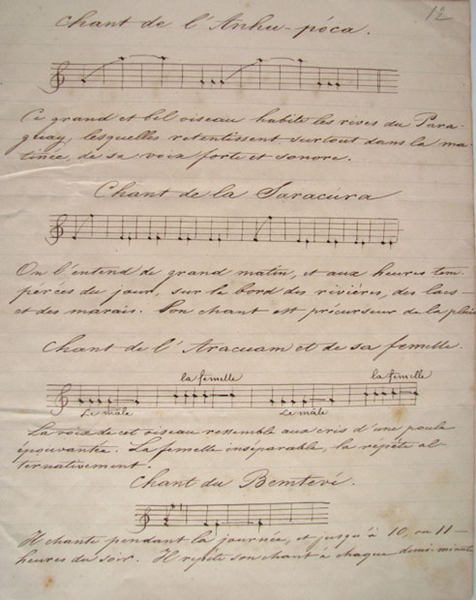 12
Chant de l'Anhu-póca.
Ce grand et bel oiseau habite les rives du Para-
guay, lesquelles retentissent surtout dans la ma-
tinée, de sa voix forte et sonore.
Chant de la Saracúra
On l'entend de grand matin, et aux heures tem-
perées du jour, sur le bord des rivières, des lacs
et des marais. Son chant est précurseur de la pluie
Chant de l'Aracuam et de sa femelle.
la femelle la femelle
Le mâle Le mâle
La voix de cet oiseau ressemble aux cris d'une poule
épouvantée. La femelle inséparable, la répète al-
ternativement.
Chant du Bemteví.
Il chante pendant la journée, et jusqu'à 10, ou 11
heures du soir. Il répète son chant à chaque demi-minute